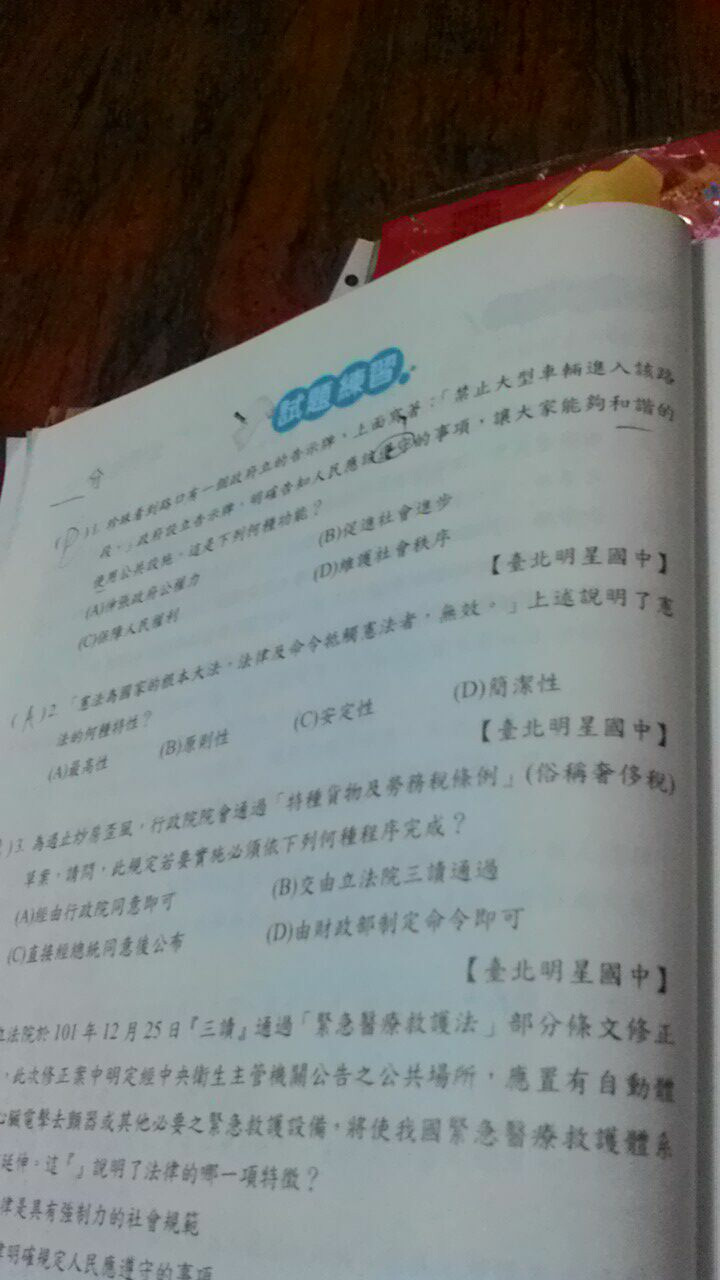 試題練習
分
(D)1. 珍珠看到路口有一個政府立的告示牌，上面寫著：「禁止大型車輛進入該路
段。」政府設立告示牌，明確告知人民應該遵守的事項，讓大家能夠和諧的
使用公共設施。這是下列何種功能？
(A)伸張政府公權力 (B)促進社會進步
(C)保障人民權利 (D)維護社會秩序
【臺北明星國中】
(A)2. 「憲法為國家的根本大法，法律及命令牴觸憲法者，無效。」上述說明了憲
法的何種特性？
(A)最高性 (B)原則性 (C)安定性 (D)簡潔性
【臺北明星國中】
)3. 為遏止炒房歪風，行政院院會通過「特種貨物及勞務稅條例」(俗稱奢侈稅)
草案，請問，此規定若要實施必須依下列何種程序完成？
(A)經由行政院同意即可 (B)交由立法院三讀通過
(C)直接經總統同意後公布 (D)由財政部制定命令即可
【臺北明星國中】
立法院於101年12月25日『三讀』通過「緊急醫療救護法」部分條文修正
，此次修正案中明定經中央衛生主管機關公告之公共場所，應置有自動體
心臟電擊去顫器或其他必要之緊急救護設備，將使我國緊急醫療救護體系
延伸。這『』說明了法律的哪一項特徵？
律是具有強制力的社會規範
律明確規定人民應遵守的事項